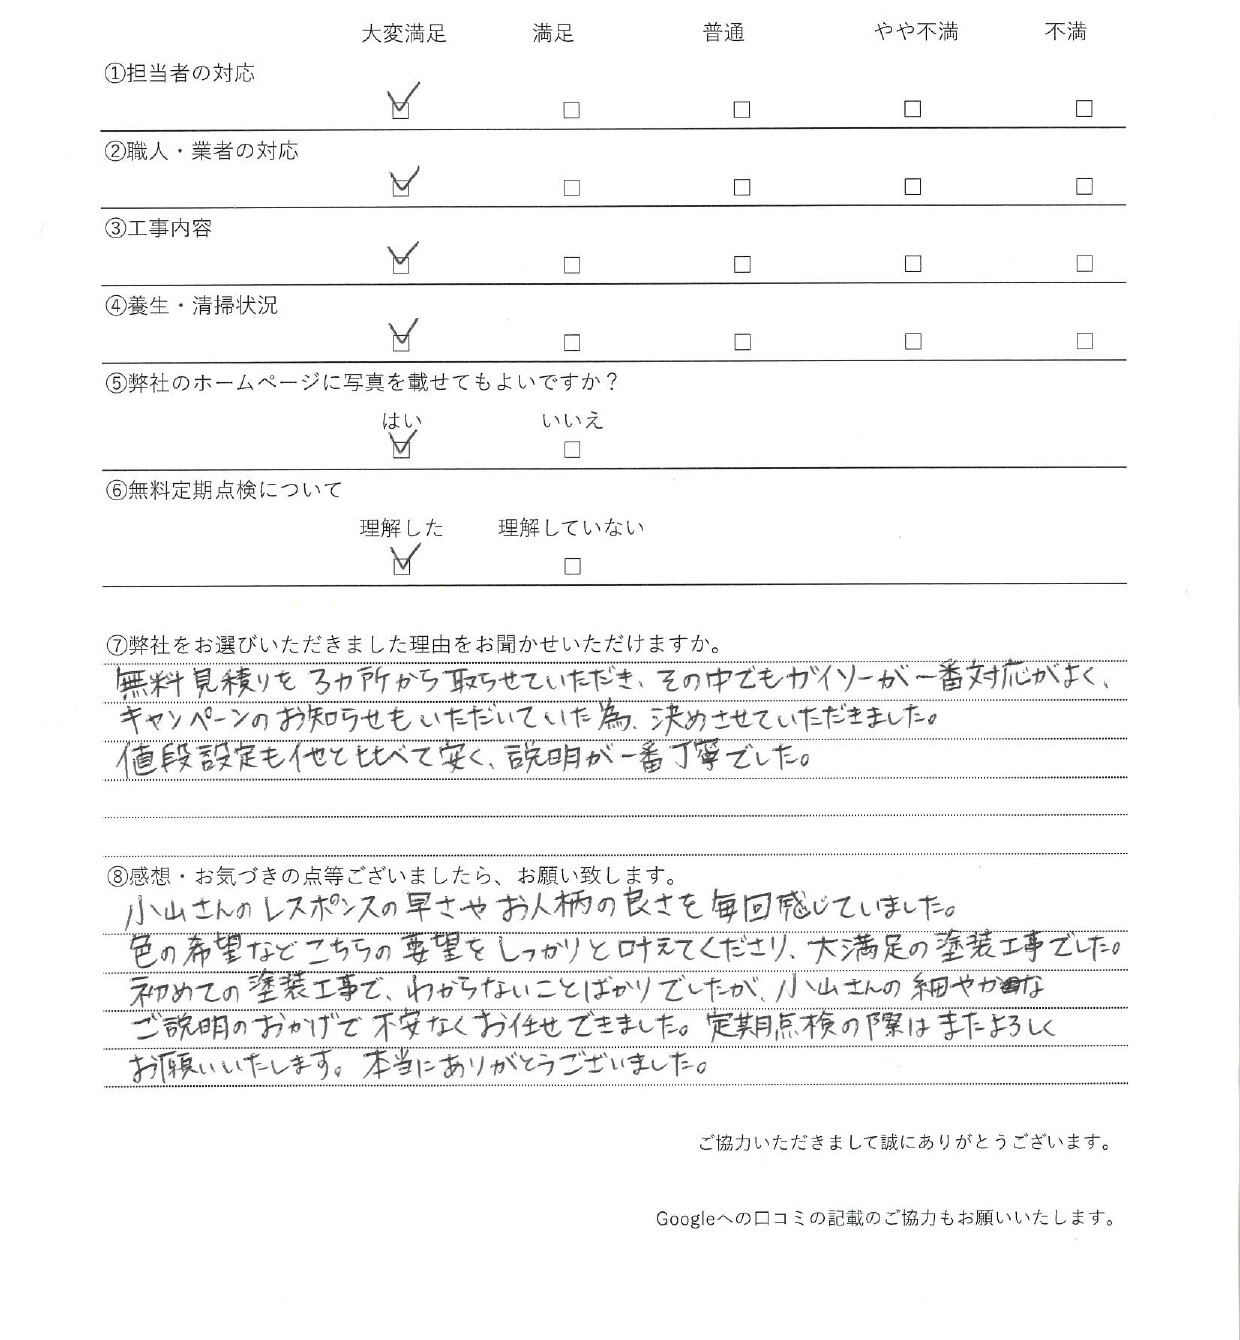 大変満足 満足 普通 やや不満 不満
①担当者の対応
②職人・業者の対応
③工事内容
④養生・清掃状況
⑤弊社のホームページに写真を載せてもよいですか？
はい いいえ
⑥無料定期点検について
理解した 理解していない
⑦弊社をお選びいただきました理由をお聞かせいただけますか。
無料見積りを3カ所から取らせていただき、その中でもガイソーが一番対応がよく、
キャンペーンのお知らせもいただいていた為、決めさせていただきました。
値段設定も他と比べて安く、説明が一番丁寧でした。
⑧感想・お気づきの点等ございましたら、お願い致します。
小山さんのレスポンスの早さやお人柄の良さを毎回感じていました。
色の希望などこちらの要望をしっかりと叶えてくださり、大満足の塗装工事でした。
初めての塗装工事で、わからないことばかりでしたが、小山さんの細やかな
ご説明のおかげで不安なくお任せできました。定期点検の際はまたよろしく
お願いいたします。本当にありがとうございました。
ご協力いただきまして誠にありがとうございます。
Googleへの口コミの記載のご協力もお願いいたします。